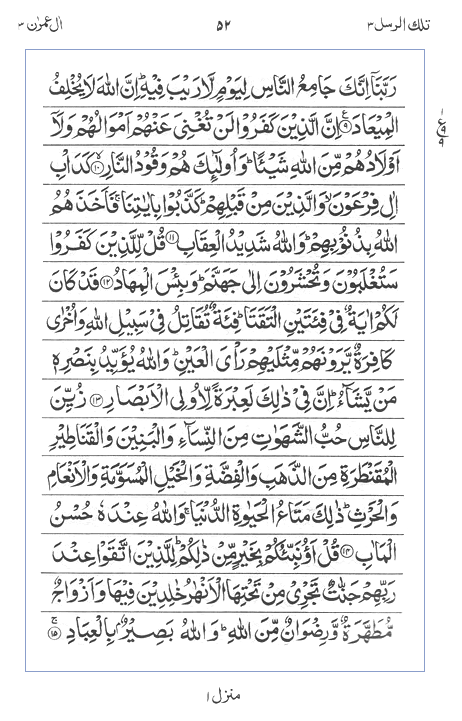 تلك الرسل ٣
٥٢
اٰل عمرٰن ٣
رَبَّنَاۤ اِنَّكَ جَامِعُ النَّاسِ لِيَوۡمٍ لَّا رَيۡبَ فِيۡهِ‌ؕ اِنَّ اللّٰهَ لَا يُخۡلِفُ
الۡمِيۡعَادَ ﴿۹﴾ اِنَّ الَّذِيۡنَ كَفَرُوۡا لَنۡ تُغۡنِىَ عَنۡهُمۡ اَمۡوَالُهُمۡ وَلَاۤ
اَوۡلَادُهُمۡ مِّنَ اللّٰهِ شَيۡــًٔا ؕ وَاُولٰٓٮِٕكَ هُمۡ وَقُوۡدُ النَّارِۙ ﴿۱۰﴾ كَدَاۡبِ
اٰلِ فِرۡعَوۡنَۙ وَالَّذِيۡنَ مِنۡ قَبۡلِهِمۡ‌ؕ كَذَّبُوۡا بِاٰيٰتِنَا ‌ۚ فَاَخَذَهُمُ
اللّٰهُ بِذُنُوۡبِهِمۡ‌ؕ وَاللّٰهُ شَدِيۡدُ الۡعِقَابِ ﴿۱۱﴾ قُلۡ لِّلَّذِيۡنَ كَفَرُوۡا
سَتُغۡلَبُوۡنَ وَتُحۡشَرُوۡنَ اِلٰى جَهَنَّمَ‌ؕ وَبِئۡسَ الۡمِهَادُ ﴿۱۲﴾ قَدۡ كَانَ
لَكُمۡ اٰيَةٌ فِىۡ فِئَتَيۡنِ الۡتَقَتَا ؕ فِئَةٌ تُقَاتِلُ فِىۡ سَبِيۡلِ اللّٰهِ وَاُخۡرٰى
كَافِرَةٌ يَّرَوۡنَهُمۡ مِّثۡلَيۡهِمۡ رَاۡىَ الۡعَيۡنِ‌ؕ وَاللّٰهُ يُؤَيِّدُ بِنَصۡرِهٖ
مَنۡ يَّشَآءُ ‌ؕ اِنَّ فِىۡ ذٰلِكَ لَعِبۡرَةً لِّاُولِى الۡاَبۡصَارِ ﴿۱۳﴾ زُيِّنَ
لِلنَّاسِ حُبُّ الشَّهَوٰتِ مِنَ النِّسَآءِ وَالۡبَنِيۡنَ وَالۡقَنَاطِيۡرِ
الۡمُقَنۡطَرَةِ مِنَ الذَّهَبِ وَالۡفِضَّةِ وَالۡخَيۡلِ الۡمُسَوَّمَةِ وَالۡاَنۡعَامِ
وَالۡحَرۡثِ‌ؕ ذٰلِكَ مَتَاعُ الۡحَيٰوةِ الدُّنۡيَا ‌ۚ وَاللّٰهُ عِنۡدَهٗ حُسۡنُ
الۡمَاٰبِ ﴿۱۴﴾ قُلۡ اَؤُنَبِّئُكُمۡ بِخَيۡرٍ مِّنۡ ذٰلِكُمۡ‌ؕ لِلَّذِيۡنَ اتَّقَوۡا عِنۡدَ
رَبِّهِمۡ جَنّٰتٌ تَجۡرِىۡ مِنۡ تَحۡتِهَا الۡاَنۡهٰرُ خٰلِدِيۡنَ فِيۡهَا وَاَزۡوَاجٌ
مُّطَهَّرَةٌ وَّرِضۡوَانٌ مِّنَ اللّٰهِ‌ؕ وَاللّٰهُ بَصِيۡرٌۢ بِالۡعِبَادِ‌ۚ ﴿۱۵﴾
منزل ١